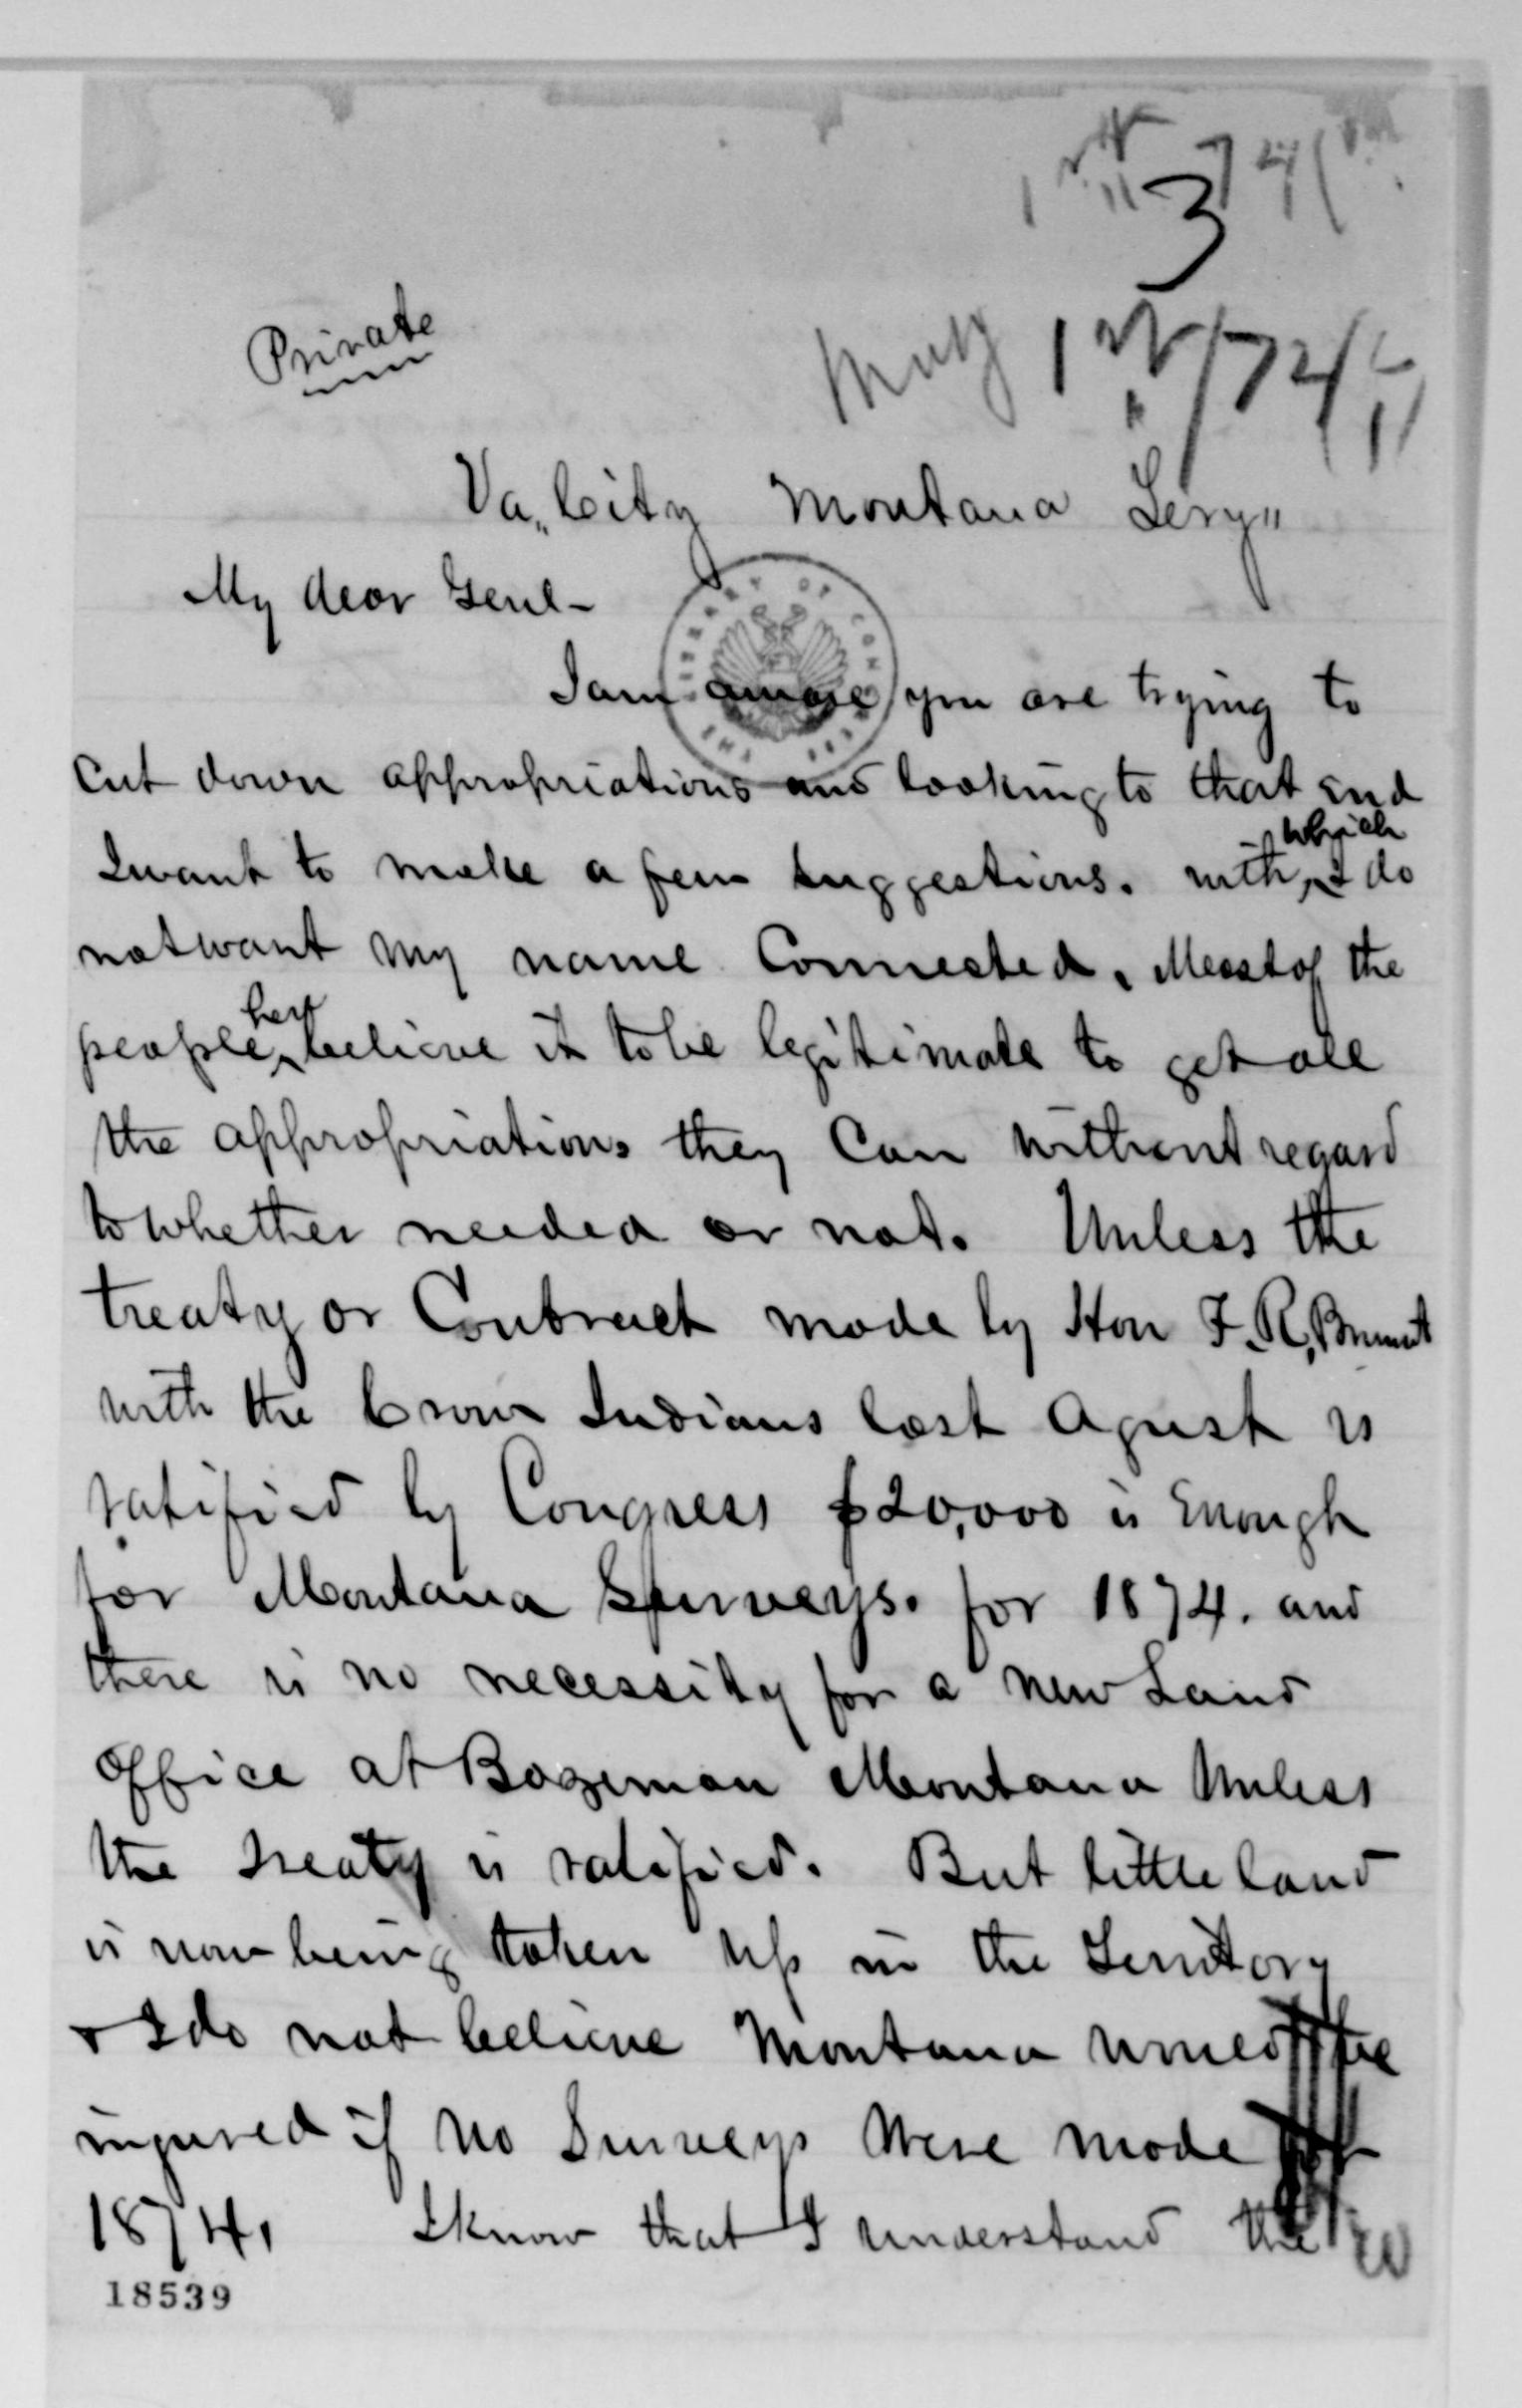 3
Private
May 1st/74
Va,, City Montana Tery"
My dear Genl-
THE LIBRARY OF CONGRESS
I am aware you are trying to
cut down appropriations and looking to that end
I want to make a few suggestions. with which I do
not want my name Connected. Most of the
people here believe it to be legitimate to get all
the appropriations they can without regard
to whether needed or not. Unless the
treaty or Contract made by Hon F. R, Brunot
with the Crow Indians last Agust is
ratified by Congress $20,000 is Enough
for Montana Surveys. for 1874. and
there is no necessity for a new Land
Office at Bozeman Montana Unless
the treaty is ratified. But little land
is now being taken up in the Territory
& I do not believe Montana would be
injured if no Surveys were made for
1874, I know that I understand the
18539